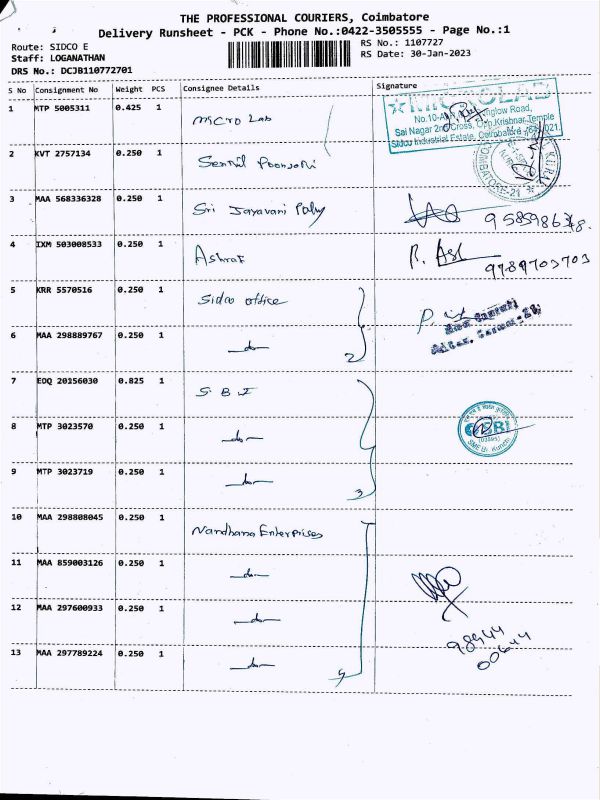 THE PROFESSIONAL COURIERS, Coimbatore
Delivery Runsheet - PCK - Phone No.:0422-3505555 - Page No.:1
Route: SIDCO E
Staff: LOGANATHAN
DRS No.: DCJB110772701
RS No.: 1107727
RS Date: 30-Jan-2023
S No Consignment No Weight PCS Consignee Details Signature
1 MTP 5005311 0.425 1 Micro Lab
MICROLAB
Sai Nagar 2nd Cross, Opp.Krishnar Temple
Sidco Industrial Estate, Coimbatore
COIMBATORE-21
2 KVT 2757134 0.250 1
3 MAA 568336328 0.250 1 Sri Jayavani
4 IXM 503008533 0.250 1 Ashraf
9789703703
5 KRR 5570516 0.250 1 Sidco office
6 MAA 298889767 0.250 1 -do-
2
7 EOQ 20156030 0.825 1 S B I
8 MTP 3023570 0.250 1 -do-
SBI
9 MTP 3023719 0.250 1 -do-
3
10 MAA 298808045 0.250 1 Nandhana Enterprises
11 MAA 859003126 0.250 1 -do-
12 MAA 297600933 0.250 1 -do-
98944
00644
13 MAA 297789224 0.250 1 -do-
4